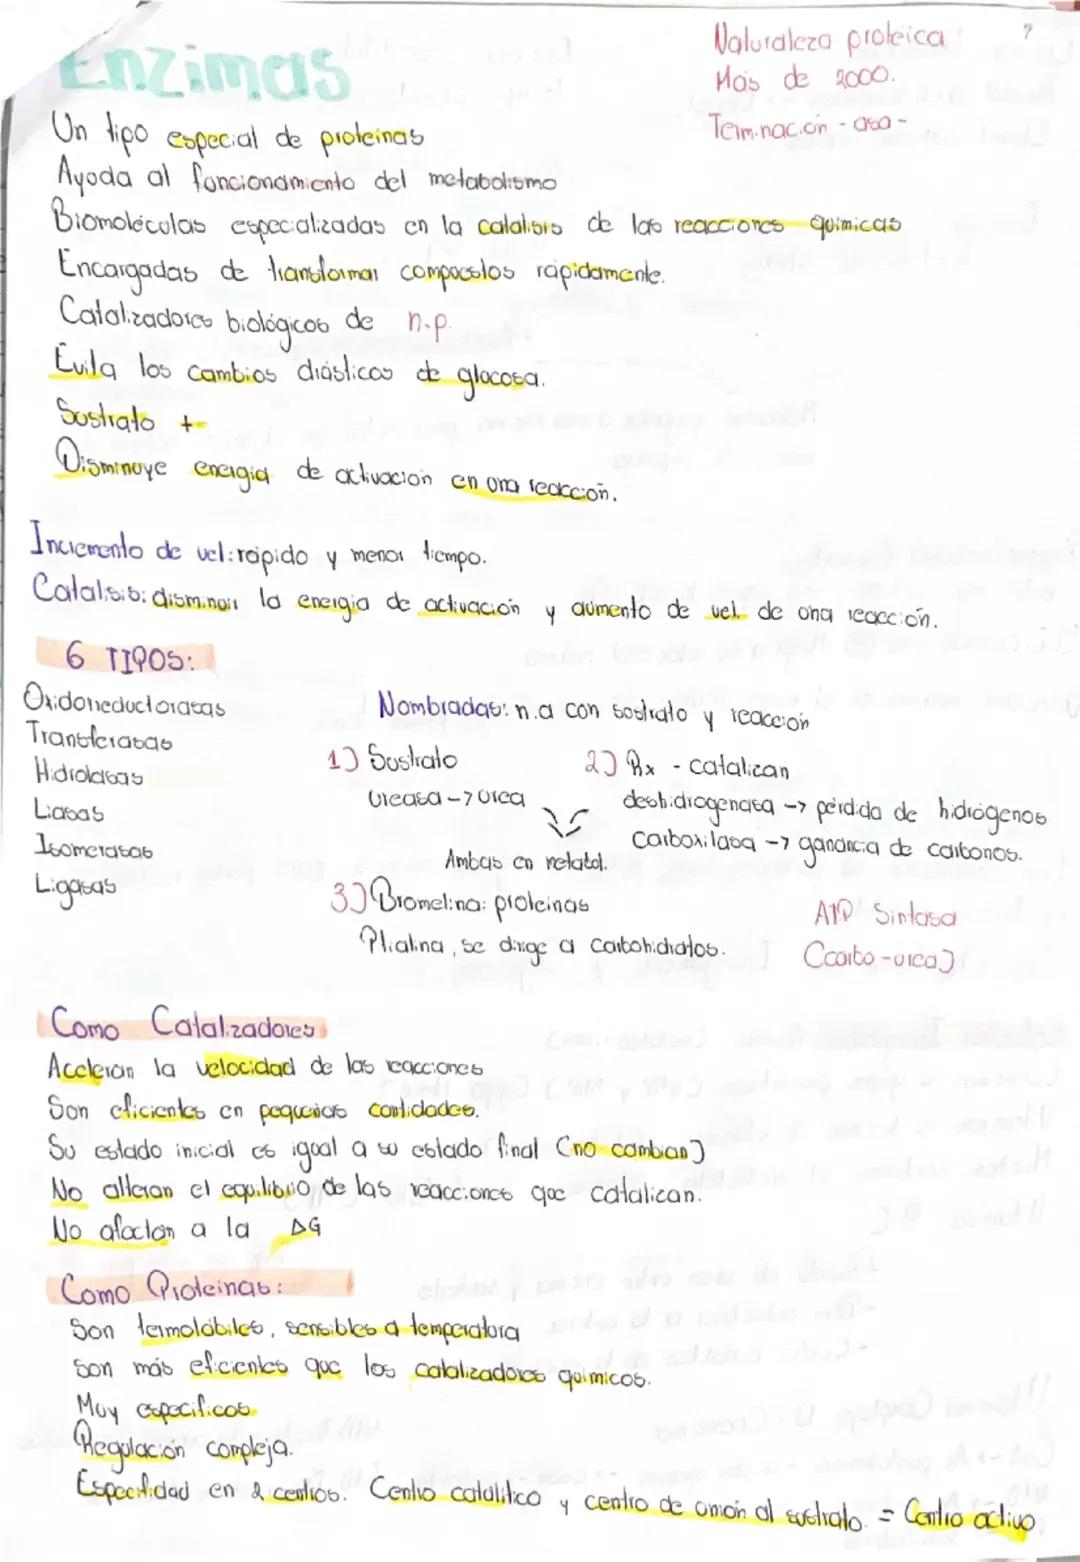 Enzimas
Naturaleza proteica
Más de 2000.
Terminación - asa -
Un tipo especial de proteinas
Ayuda al funcionamiento del metabolismo
Biomoléculas especializadas en la catalisis de las reacciones quimicas
Encargadas de transformar compuestos rápidamente.
Catalizadores biológicos de n.p.
Evita los cambios drásticos de glucosa.
Sustrato +
Disminuye energia de activación en una reacción.
Incremento de vel: rápido y menor tiempo.
Catalisis: disminuir la energia de activación y aumento de vel. de una reacción.
6 TIPOS:
Oxidoreductorasas
Transferasas
Hidrolasas
Liasas
Isomerasas
Ligasas
Nombradas: n.a con sustrato y reacción
1) Sustrato
Ureasa -> Urea
2) Rx - catalizan
deshidrogenasa -> pérdida de hidrógenos
carboxilasa -> ganancia de carbonos.
Ambas en metabol.
3) Bromelina: proteinas
Ptialina, se dirige a carbohidratos.
ATP Sintasa
(carbo-urea)
Como Catalizadores
Aceleran la velocidad de las reacciones
Son eficientes en pequeñas cantidades.
Su estado inicial es igual a su estado final (no cambian)
No alteran el equilibrio de las reacciones que catalizan.
No afectan a la ΔG
Como Proteinas:
Son termolábiles, sensibles a temperatura
Son más eficientes que los catalizadores quimicos.
Muy especificos
Regulación compleja.
Especifidad en 2 centros. Centro catalitico y centro de unión al sustrato. = Centro activo